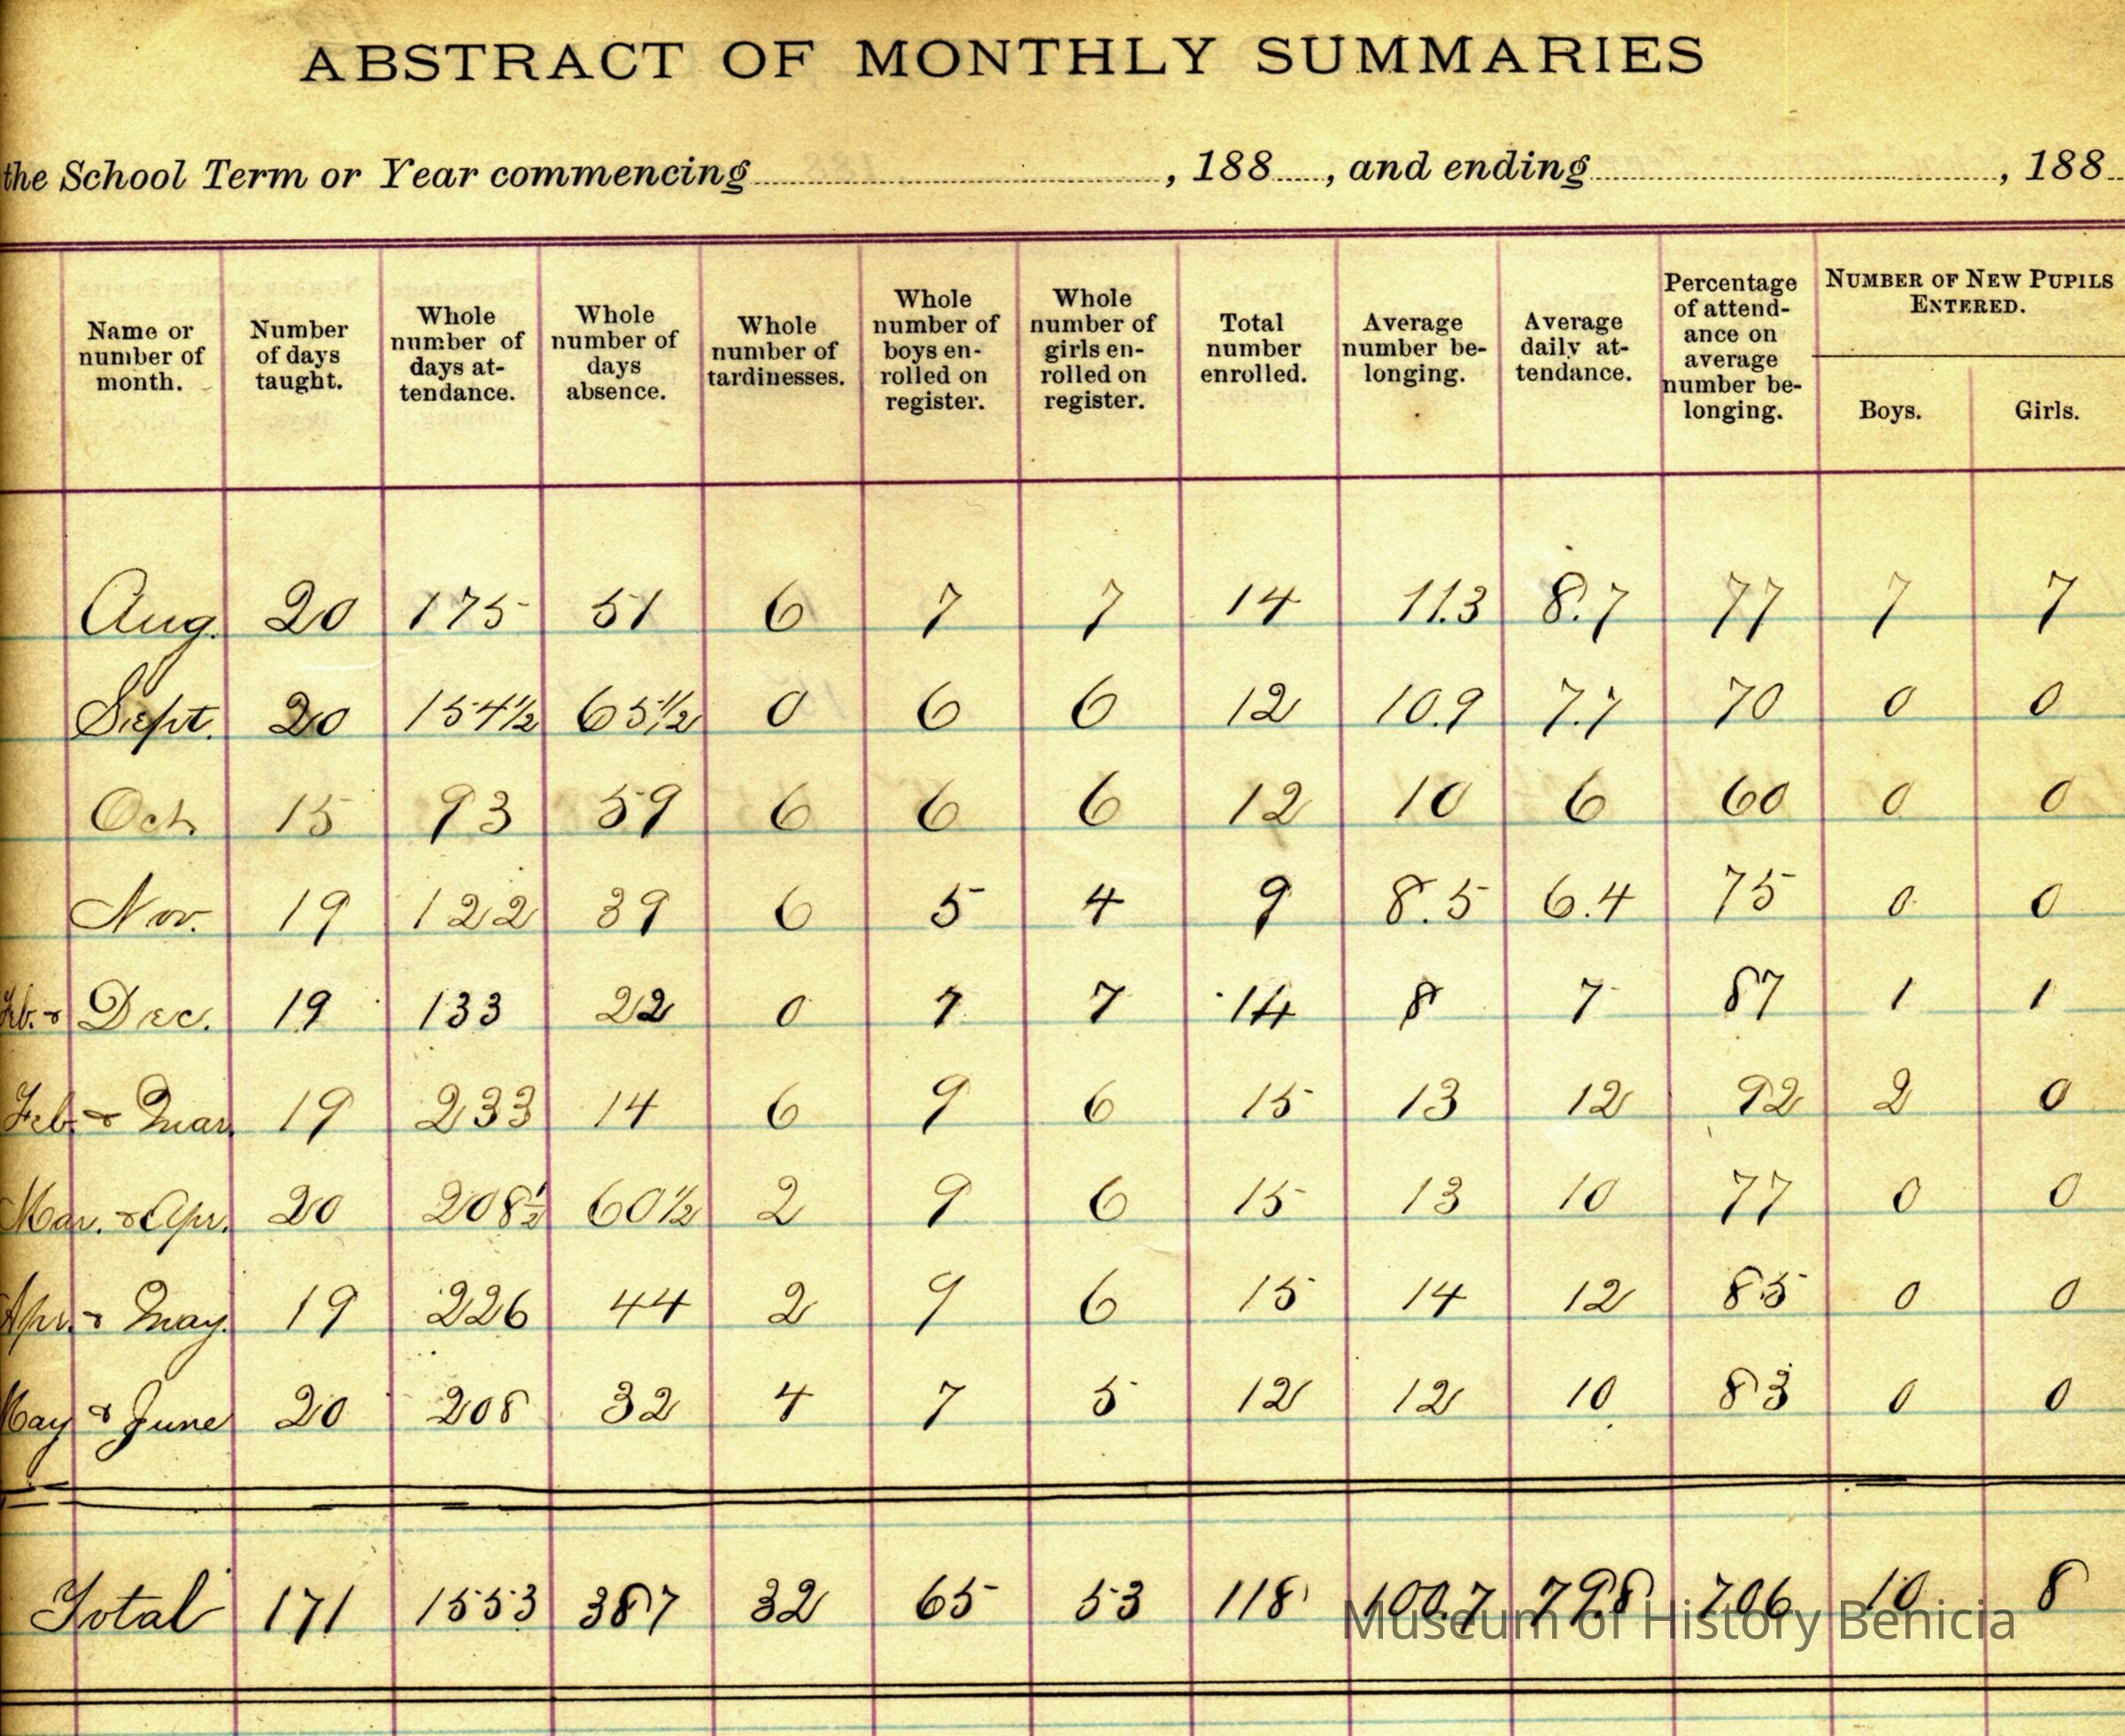 ABSTRACT OF MONTHLY SUMMARIES
the School Term or Year commencing , 188 , and ending , 188
Name or number of month. Number of days taught. Whole number of days attendance. Whole number of days absence. Whole number of tardinesses. Whole number of boys en-rolled on register. Whole number of girls en-rolled on register. Total number enrolled. Average number be-longing. Average daily at-tendance. Percentage of attend-ance on average number be-longing. NUMBER OF NEW PUPILS ENTERED.
Boys. Girls.
Aug. 20 175 51 6 7 7 14 11.3 8.7 77 7 7
Sept. 20 154 1/2 65 1/2 0 6 6 12 10.9 7.7 70 0 0
Oct. 15 93 59 6 6 6 12 10 6 60 0 0
Nov. 19 122 39 6 5 4 9 8.5 6.4 75 0 0
Feb. & Dec. 19 133 22 0 7 7 14 8 7 87 1 1
Feb. & Mar. 19 233 14 6 9 6 15 13 12 92 2 0
Mar. & Apr. 20 208 1/2 60 1/2 2 9 6 15 13 10 77 0 0
Apr. & May. 19 226 44 2 9 6 15 14 12 85 0 0
May & June 20 208 32 4 7 5 12 12 10 83 0 0
Total 171 1553 387 32 65 53 118 100.7 79.8 706 10 8
Museum of History Benicia